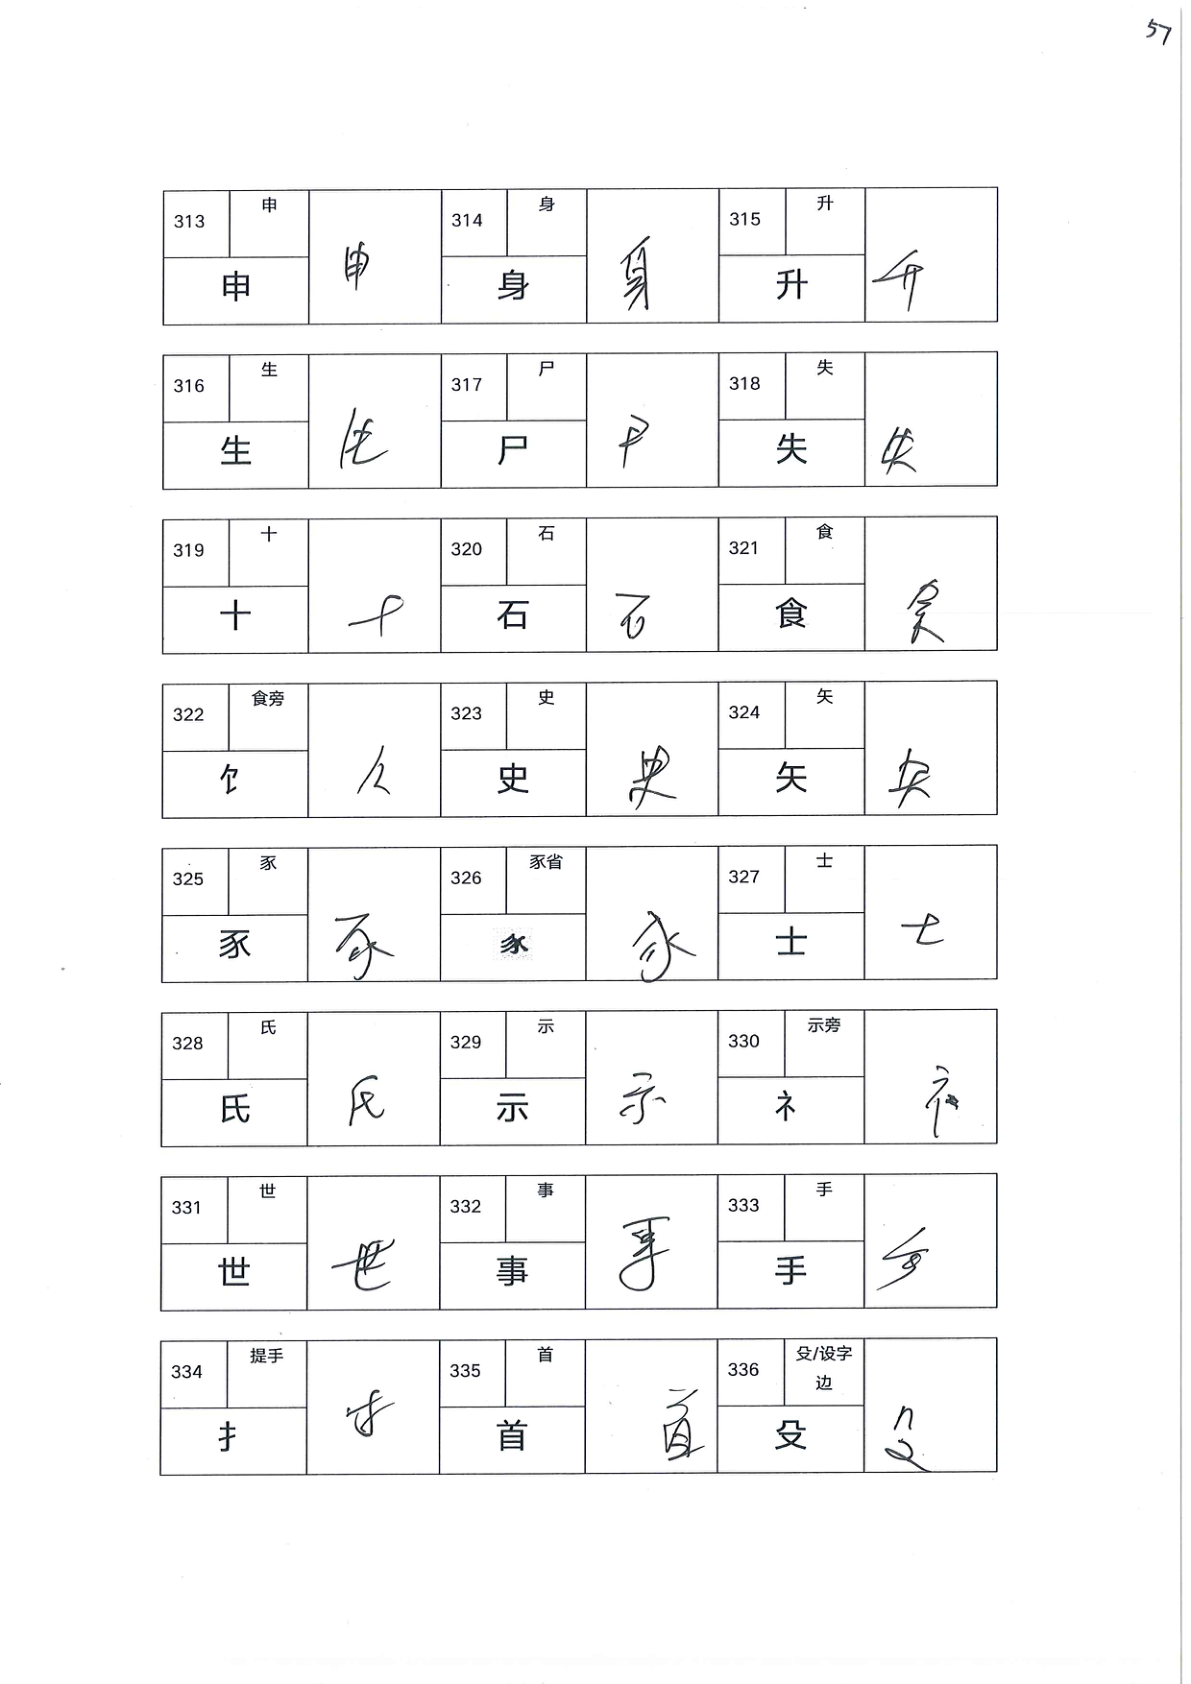 57
313 申 申 314 身 身 315 升 升
申 身 升
316 生 生 317 尸 尸 318 失 失
生 尸 失
319 十 十 320 石 石 321 食 食
十 石 食
322 食旁 饣 323 史 史 324 矢 矢
饣 史 矢
325 豕 豕 326 豕省 327 士 士
豕 士
328 氏 氏 329 示 示 330 示旁 礻
氏 示 礻
331 世 世 332 事 事 333 手 手
世 事 手
334 提手 扌 335 首 首 336 殳/设字
边 殳
扌 首 殳